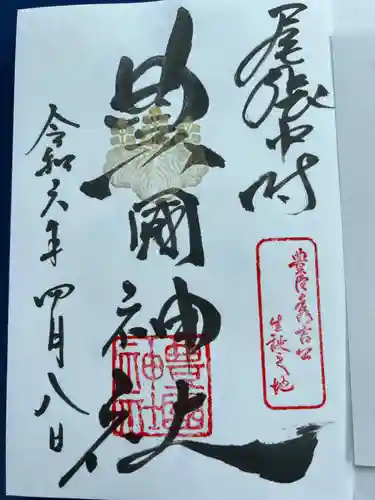 尾張中村
豊臣秀吉公
生誕之地
豊國神社
豊國神社
令和六年四月八日